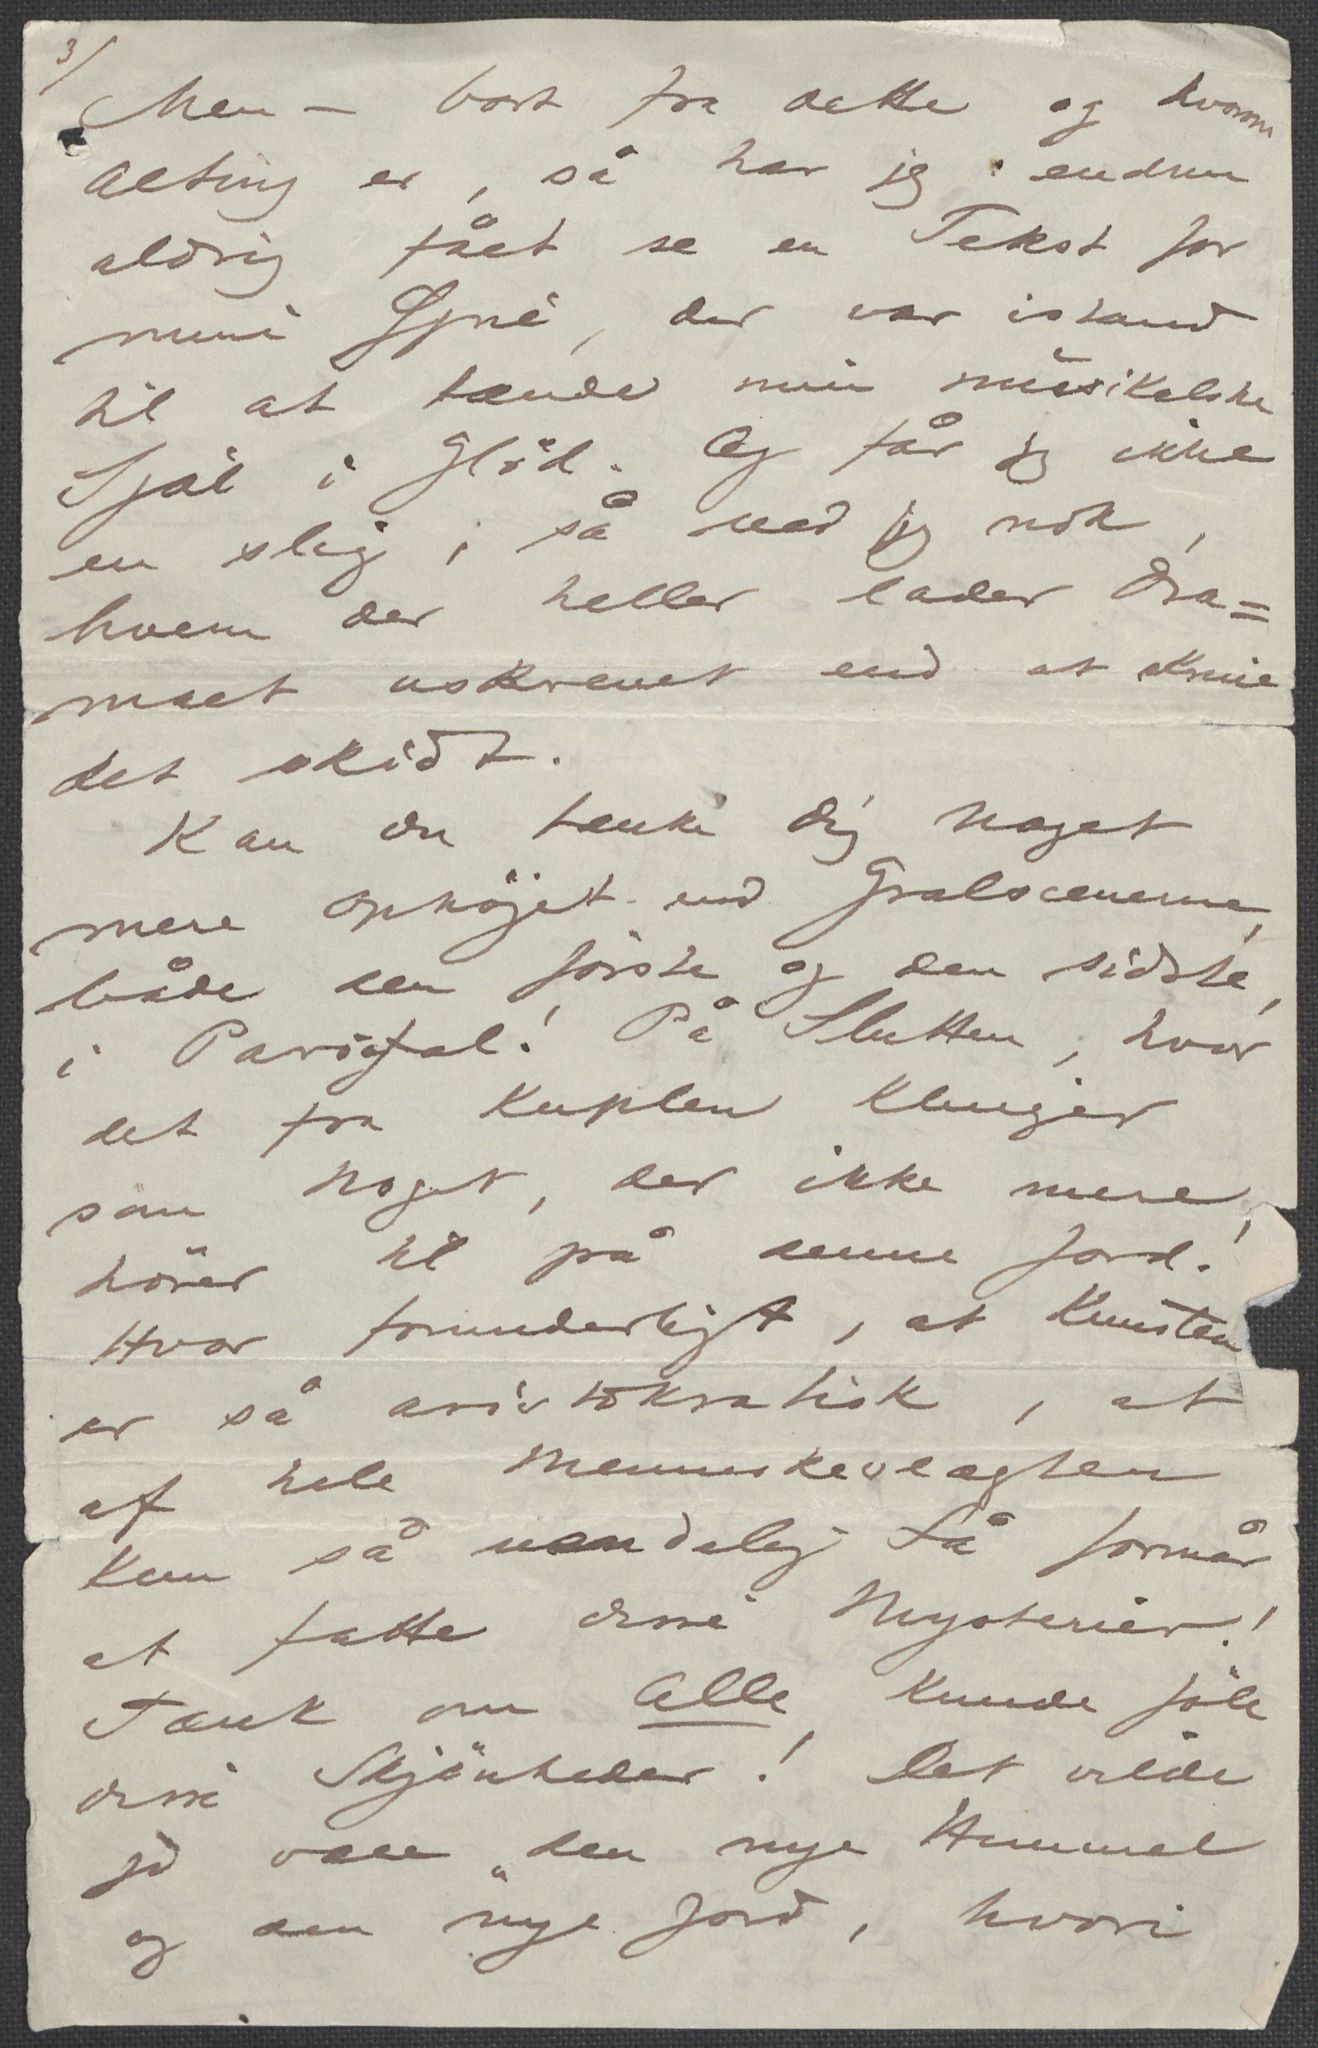 3/
Men – bort fra dette og hvorom
Alting er, så har jeg endnu
aldrig fået se en Tekst for
mine Øjne, der var istand
til at tænde min musikalske
Sjæl i Glöd. Og får jeg ikke
en slig, så ved jeg nok,
hvem der heller lader Dra=
maet uskrevet end at skrive
det skidt.
Kan du tænke dig noget
mere ophöjet end Gralscenerne,
både den förste og den sidste,
i Parsifal! På Slutten, hvor
det fra Kuplen klinger
som noget, der ikke mere
hörer til på denne Jord!
Hvor forunderligt, at Kunsten
er så aristokratisk, at
af hele Menneskeslægten
kun så uendelig få formår
at fatte disse Mysterier!
Tænk om Alle kunde föle
disse Skjönheder! Det vilde
jo være „den nye Himmel
og den nye Jord, hvori